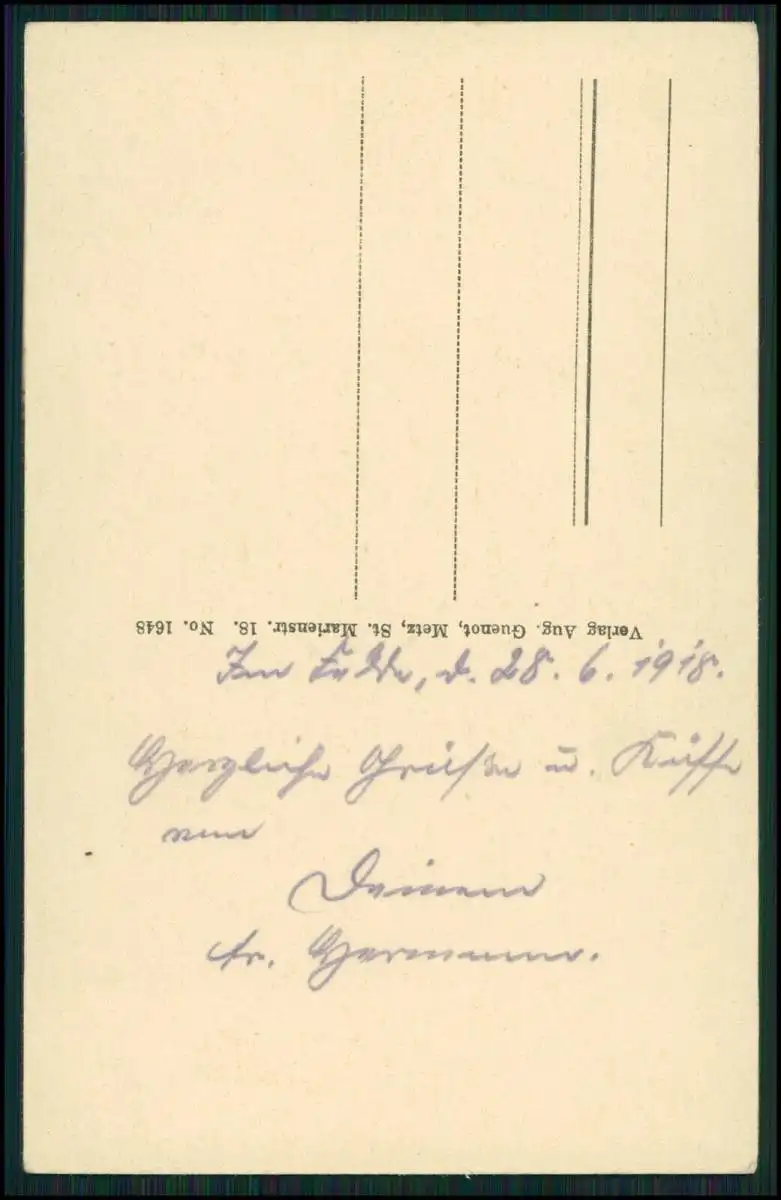 Verlag Aug. Guenot, Metz, St. Marienstr. 18. No. 1648
Im Felde, d. 28. 6. 1918.
Herzliche Grüße u. Küsse
von
Deinem
tr. Hermann.